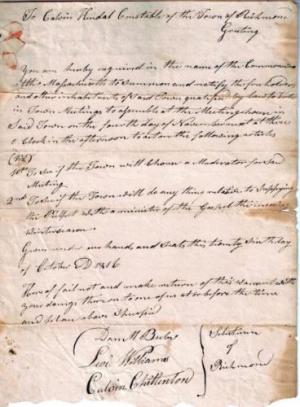 To Calvin Hendal Constable of the Town of Richmond
Greeting
You are hereby required in the name of the Commonwea
of the Massachusetts to summon and notify the freeholders
and other inhabitants of Said Town qualified by law to Vote
in Town Meetings to assemble at the Meeting house in
Said Town on the fourth day of November next at three
o Clock in the afternoon to act on the following articles
(viz)
1st To see if the Town will Choose a Moderator for Said
Meting
2nd To see if the Town will do any thing relative to Supplying
the Pulpet with a minister of the Gospel the insuing
Winter season
Given under our hands and Seals this twenty Sixth day
of October AD 1816
Hereof fail not and make return of this warrant with
your doings thereon to one of us at or before the time
and above
Levi Williams
Calvin Chittenton
Selectmen
of
Richmond